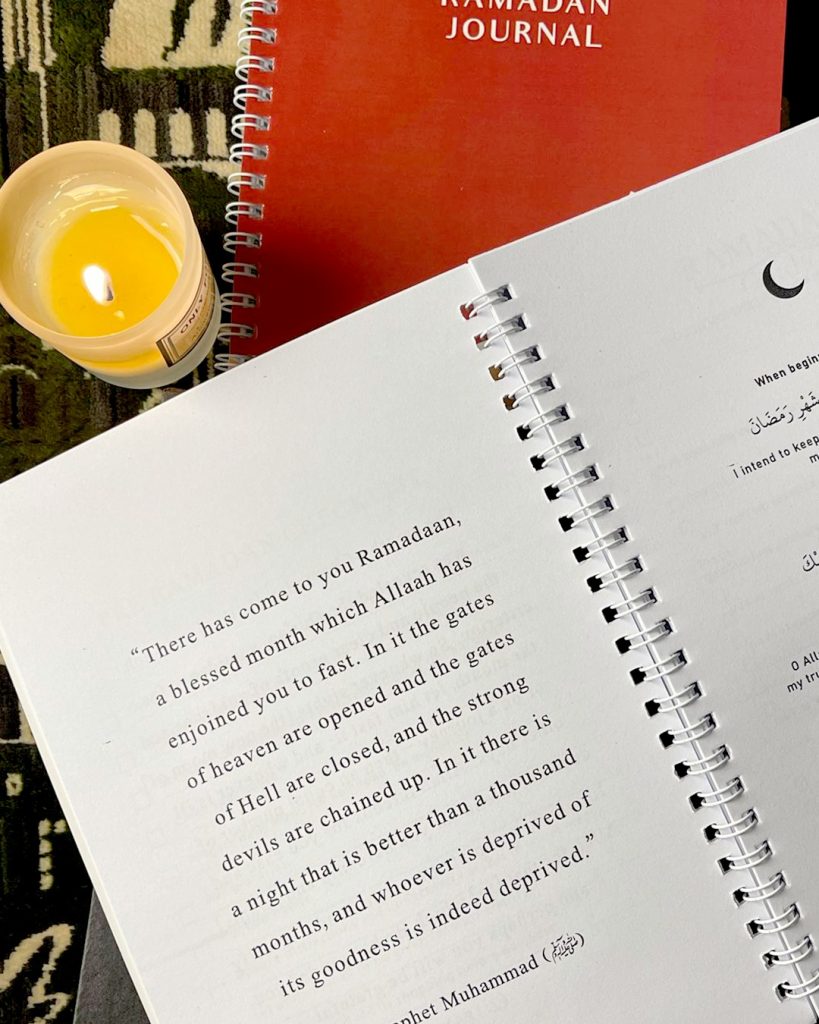 RAMADAN
JOURNAL
ONLY
“There has come to you Ramadaan,
a blessed month which Allaah has
enjoined you to fast. In it the gates
of heaven are opened and the gates
of Hell are closed, and the strong
devils are chained up. In it there is
a night that is better than a thousand
months, and whoever is deprived of
its goodness is indeed deprived.”
Muhammad (ﷺ)
When
شَهْرِ رَمَضَانَ
I intend to keep
O
my